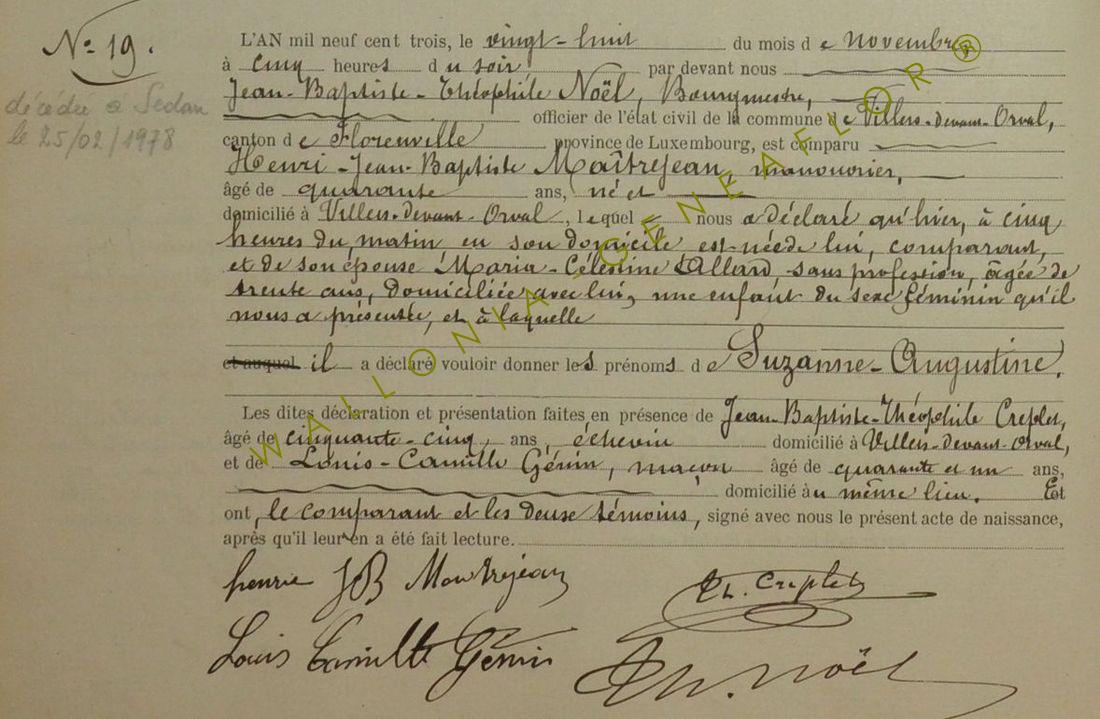 N° 19.
décédée à Sedan
le 25/02/1978
L'AN mil neuf cent trois, le vingt-huit du mois de novembre
à cinq heures du soir par devant nous
Jean-Baptiste-Théophile Noël, Bourgmestre,
officier de l'état civil de la commune de Villers-devant-Orval,
canton de Florenville province de Luxembourg, est comparu
Henri-Jean-Baptiste Maîtrejean, manouvrier,
âgé de quarante ans, né et
domicilié à Villers-devant-Orval, lequel nous a déclaré qu'hier, à cinq
heures du matin en son domicile est née de lui, comparant,
et de son épouse Maria-Célestine Allard, sans profession, âgée de
trente ans, domiciliée avec lui, une enfant du sexe féminin qu'il
nous a présentée, et à laquelle
et auquel il a déclaré vouloir donner les prénoms de Suzanne-Augustine.
Les dites déclaration et présentation faites en présence de Jean-Baptiste-Théophile Creplet,
âgé de cinquante-cinq, ans, échevin domicilié à Villers-devant-Orval,
et de Louis-Camille Génin, maçon âgé de quarante et un ans,
domicilié au même lieu. Et
ont, le comparant et les deux témoins, signé avec nous le présent acte de naissance,
après qu'il leur en a été fait lecture.
henrie JB Maitrejean
Th. Creplet
Louis Camille Génin
Th. Noël
WALLONIA GENEAFLOR ®